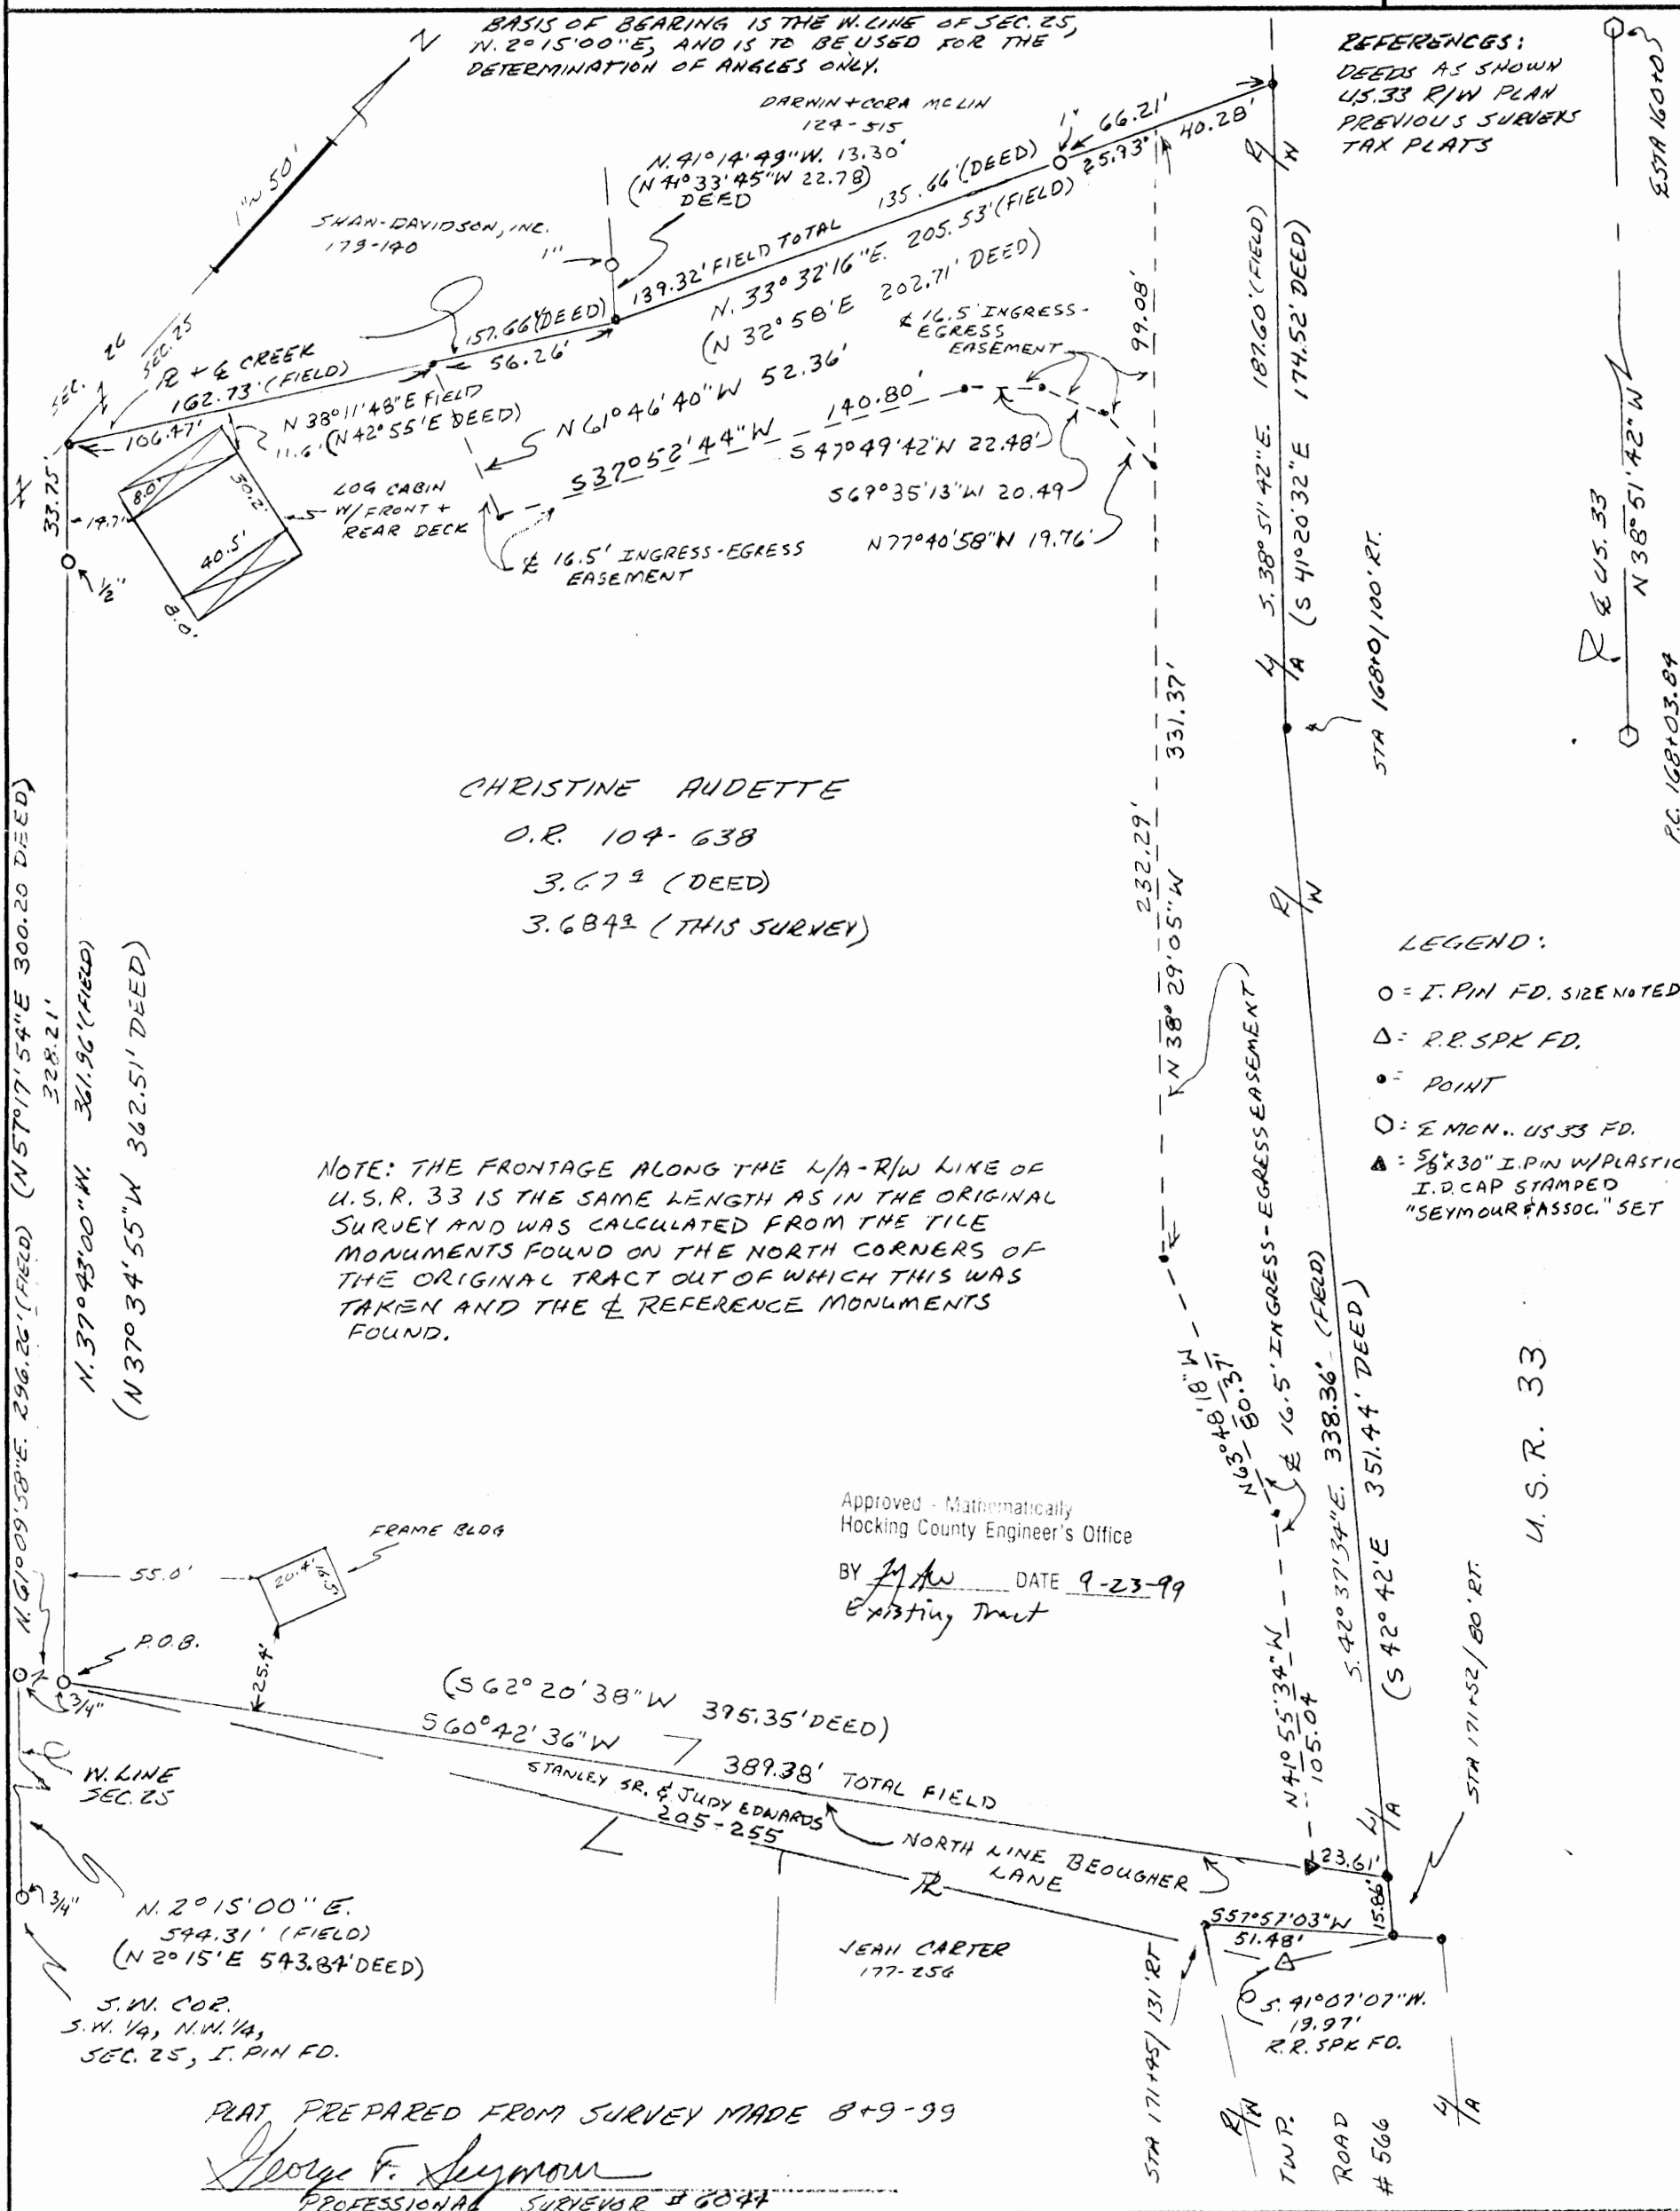 BASIS OF BEARING IS THE W. LINE OF SEC. 25,
N. 2°15'00"E, AND IS TO BE USED FOR THE
DETERMINATION OF ANGLES ONLY.
N
1" = 50'
REFERENCES:
DEEDS AS SHOWN
U.S. 33 R/W PLAN
PREVIOUS SURVEYS
TAX PLATS
DARWIN + CORA MCLIN
124-515
N. 41°14'49"W. 13.30'
(N 41°33'45"W 22.78)
DEED
SHAW-DAVIDSON, INC.
179-140
1"
1"
66.21'
25.93'
40.28'
135.66' (DEED)
139.32' FIELD TOTAL
N. 33°32'16"E. 205.53' (FIELD)
(N 32°58'E 202.71' DEED)
157.66' (DEED)
56.26'
SEC. 26
SEC. 25
℄ CREEK
162.73' (FIELD)
106.47'
N 38°11'48"E FIELD
(N 42°55'E DEED)
11.6'
N 61°46'40"W 52.36'
℄ 16.5' INGRESS-
EGRESS
EASEMENT
S 37°52'44"W 140.80'
S 47°49'42"W 22.48'
S 69°35'13"W 20.49
N 77°40'58"W 19.76'
℄ 16.5' INGRESS-EGRESS
EASEMENT
LOG CABIN
W/ FRONT +
REAR DECK
8.0'
30.2'
40.5'
8.0'
14.7'
33.75'
1/2"
99.08'
331.37'
232.29'
N 38°29'05"W
R/W
S. 38°51'42"E. 187.60' (FIELD)
(S 41°20'32"E 174.52' DEED)
L/A
STA 168+01/100' RT.
℄ U.S. 33
N 38°51'42"W
P.C. 168+03.84
R/W
CHRISTINE AUDETTE
O.R. 104-638
3.67 a (DEED)
3.684 a (THIS SURVEY)
N. 61°09'58"E. 296.26' (FIELD) (N 57°17'54"E 300.20 DEED)
328.21'
N. 37°43'00"W. 361.96' (FIELD)
(N 37°34'55"W 362.51' DEED)
LEGEND:
○ = I. PIN FD. SIZE NOTED
△ = R.R. SPK FD.
• = POINT
⬡ = ℄ MON. US 33 FD.
▲ = 5/8" x 30" I. PIN W/PLASTIC
I.D. CAP STAMPED
"SEYMOUR & ASSOC." SET
NOTE: THE FRONTAGE ALONG THE L/A-R/W LINE OF
U.S.R. 33 IS THE SAME LENGTH AS IN THE ORIGINAL
SURVEY AND WAS CALCULATED FROM THE TILE
MONUMENTS FOUND ON THE NORTH CORNERS OF
THE ORIGINAL TRACT OUT OF WHICH THIS WAS
TAKEN AND THE ℄ REFERENCE MONUMENTS
FOUND.
N 63°48'18"W
80.37'
℄ 16.5' INGRESS-EGRESS EASEMENT
S. 42°37'34"E. 338.36' (FIELD)
(S 42°42'E 351.44' DEED)
N 41°55'34"W
105.04
L/A
U.S.R. 33
STA 171+52/80' RT.
FRAME BLDG
20.4'
16.5'
55.0'
25.4'
P.O.B.
3/4"
Approved - Mathematically
Hocking County Engineer's Office
BY DATE 9-23-99
Existing Tract
(S 62°20'38"W 395.35' DEED)
S 60°42'36"W 389.38' TOTAL FIELD
STANLEY SR. & JUDY EDWARDS
205-255
NORTH LINE BEOUGHER
LANE
23.61'
15.86'
S 57°57'03"W
51.48'
W. LINE
SEC. 25
3/4"
N. 2°15'00"E.
544.31' (FIELD)
(N 2°15'E 543.84' DEED)
S.W. COR.
S.W. 1/4, N.W. 1/4,
SEC. 25, I. PIN FD.
JEAN CARTER
177-256
STA 171+45/131' RT
S. 41°07'07"W.
19.97'
R.R. SPK FD.
R/W
TWP.
ROAD
# 566
L/A
PLAT PREPARED FROM SURVEY MADE 8+9-99
George F. Seymour
PROFESSIONAL SURVEYOR # 6044